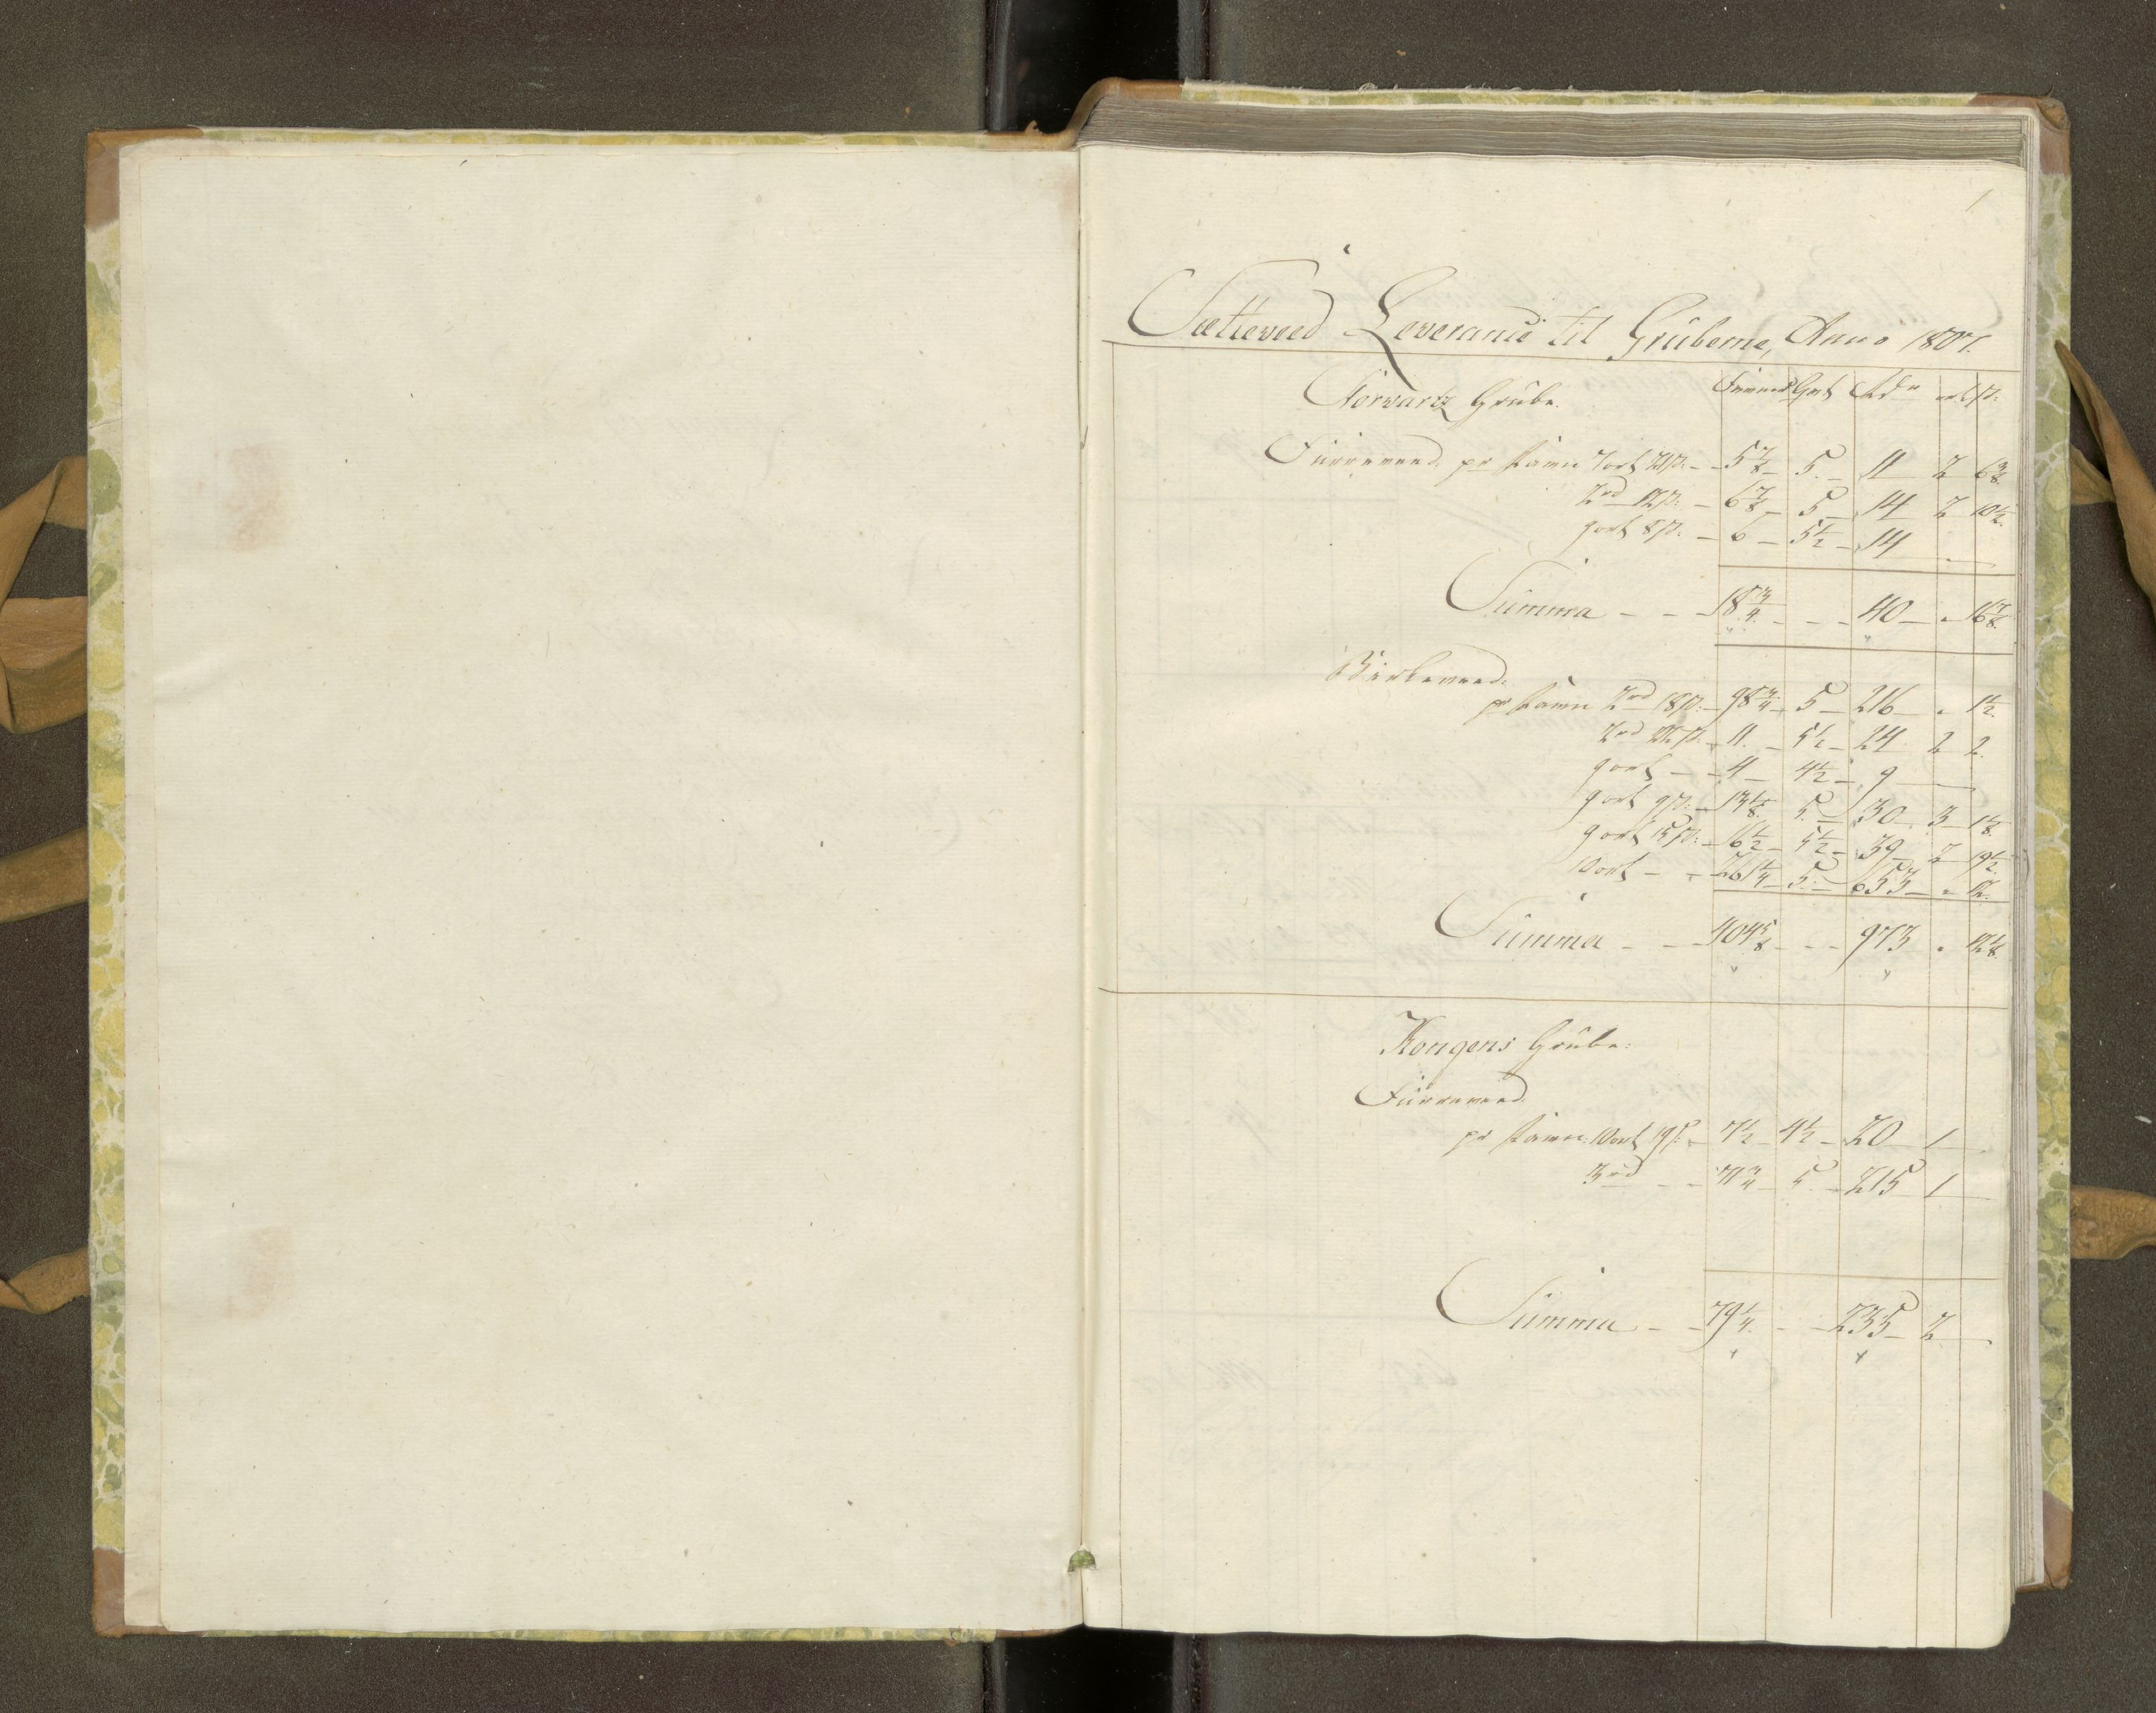 1
Sætteveed Leverance til Gruberne, Anno 1807.
Storvartz Grube. Favner Qvt Rdr ort s:
Furreveed pr Favn 7 ort 21 s: 5 7/8 5 11 2 6 3/8
2 rd 12 s: 6 7/8 5 14 2 10 1/2
9 ort 8 s: 6 5 1/2 14
Summa 18 3/4 40 16 7/8
Birkeveed.
pr Favn 2 rd 18 s: 98 3/4 5 216 1 1/2
2 rd 22 s: 11 5 1/2 24 2 2
9 ort 4 4 1/2 9
9 ort 9 s: 13 1/8 5 30 3 1 1/8
9 ort 15 s: 16 1/2 5 1/2 39 2 19 1/2
10 ort 261 1/4 5 653 12
Summa 404 5/8 973 12 1/8
Kongens Grube:
Furreveed
pr Favn: 10 ort 19 s: 7 1/2 4 1/2 20 1
3 rd 71 3/4 5 215 1
Summa 79 1/4 235 2